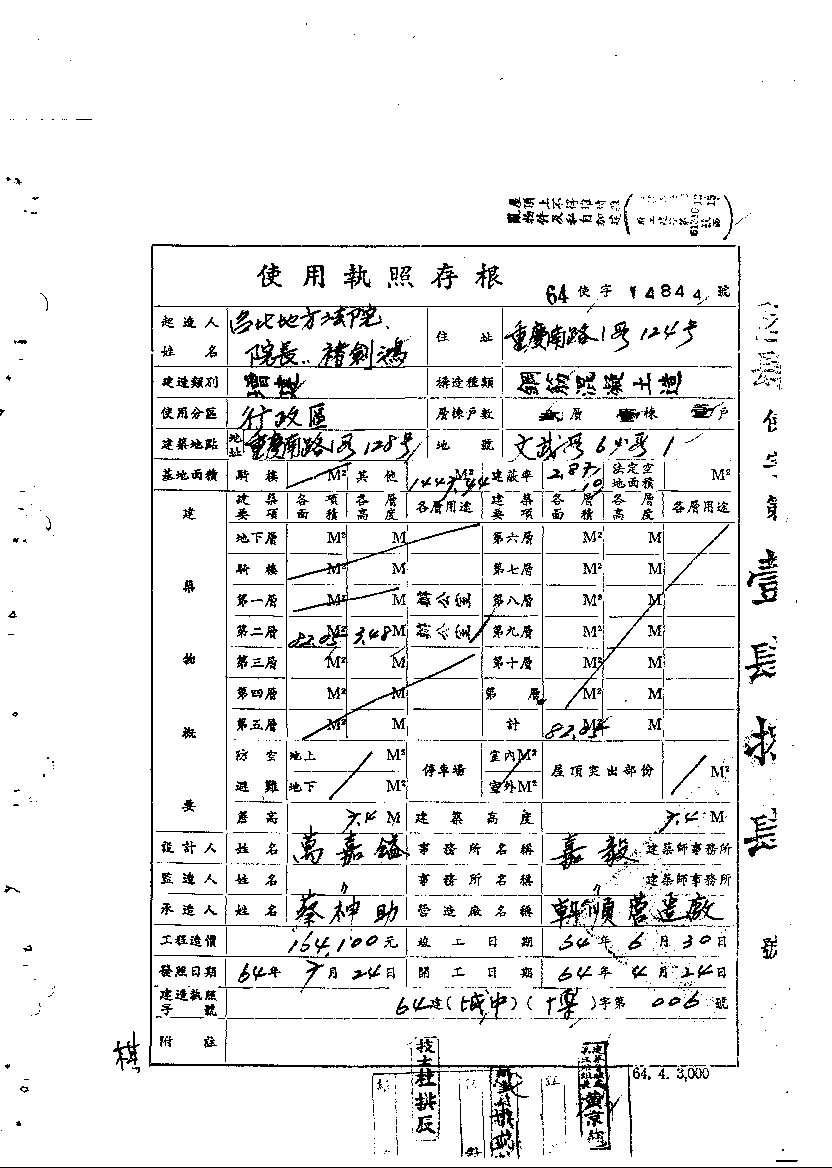 使用執照存根
64 使字 1484 號
起造人姓名 台北地方法院 院長 褚劍鴻 住址 重慶南路1段124号
建造類別 增建 構造種類 鋼筋混凝土造
使用分區 行政區 層棟戶數 層 棟 戶
建築地點 地址 重慶南路1段128号 地號 文武段6小段1
基地面積 騎樓 M² 其他 M² 建蔽率 法定空地面積 M²
建築物概要 建築要項 各項面積 各層高度 各層用途 建築要項 各層面積 各層高度 各層用途
地下層 M² M 第六層 M² M
騎樓 M² M 第七層 M² M
第一層 M² M 辦公室 第八層 M² M
第二層 82.05 M² 3.48 M 辦公室 第九層 M² M
第三層 M² M 第十層 M² M
第四層 M² M 第 層 M² M
第五層 M² M 計 82.05 M² M
防空 地上 M² 停車場 室內M² 屋頂突出部份 M²
避難 地下 M² 室外M²
簷高 7.4 M 建築高度 7.4 M
設計人 姓名 萬嘉鎰 事務所名稱 嘉毅 建築師事務所
監造人 姓名 〃 事務所名稱 〃 建築師事務所
承造人 姓名 蔡神助 營造廠名稱 營造廠
工程造價 164,100元 竣工日期 64年6月30日
發照日期 64年7月24日 開工日期 64年4月24日
建造執照字號 64建(城中)( )字第006號
附註
棋
64. 4. 3,000
技士杜拱辰
黃京
使字第
號